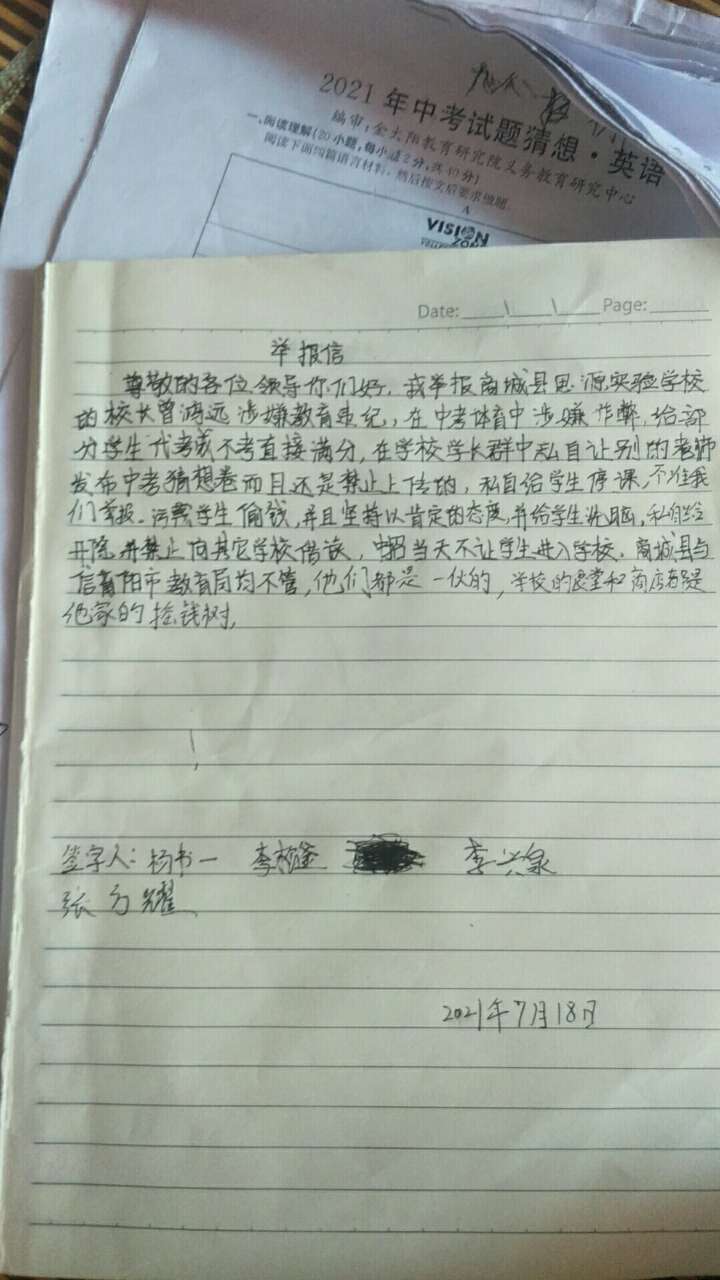 2021年中考试题猜想·英语
编审:金太阳教育研究院义务教育研究中心
一、阅读理解(20小题,每小题2分,共40分)
阅读下面四篇语言材料,然后按文后要求做题。
A
VISION
Date: Page:
举报信
尊敬的各位领导你们好,我举报商城县思源实验学校
的校长曾鸿远涉嫌教育违纪,在中考体育中涉嫌作弊,给部
分学生代考或不考直接满分,在学校学长群中私自让别的老师
发布中考猜想卷而且还是禁止上传的,私自给学生停课,不准我
们举报。污蔑学生偷钱,并且坚持以肯定的态度,并给学生洗脑,私自给
开除,并禁止向其它学校借读,中招当天不让学生进入学校。商城县与
信阳市教育局均不管,他们都是一伙的,学校的食堂和商店都是
他家的摇钱树,
签字人:杨书一 李 李兴泉
张 耀
2021年7月18日